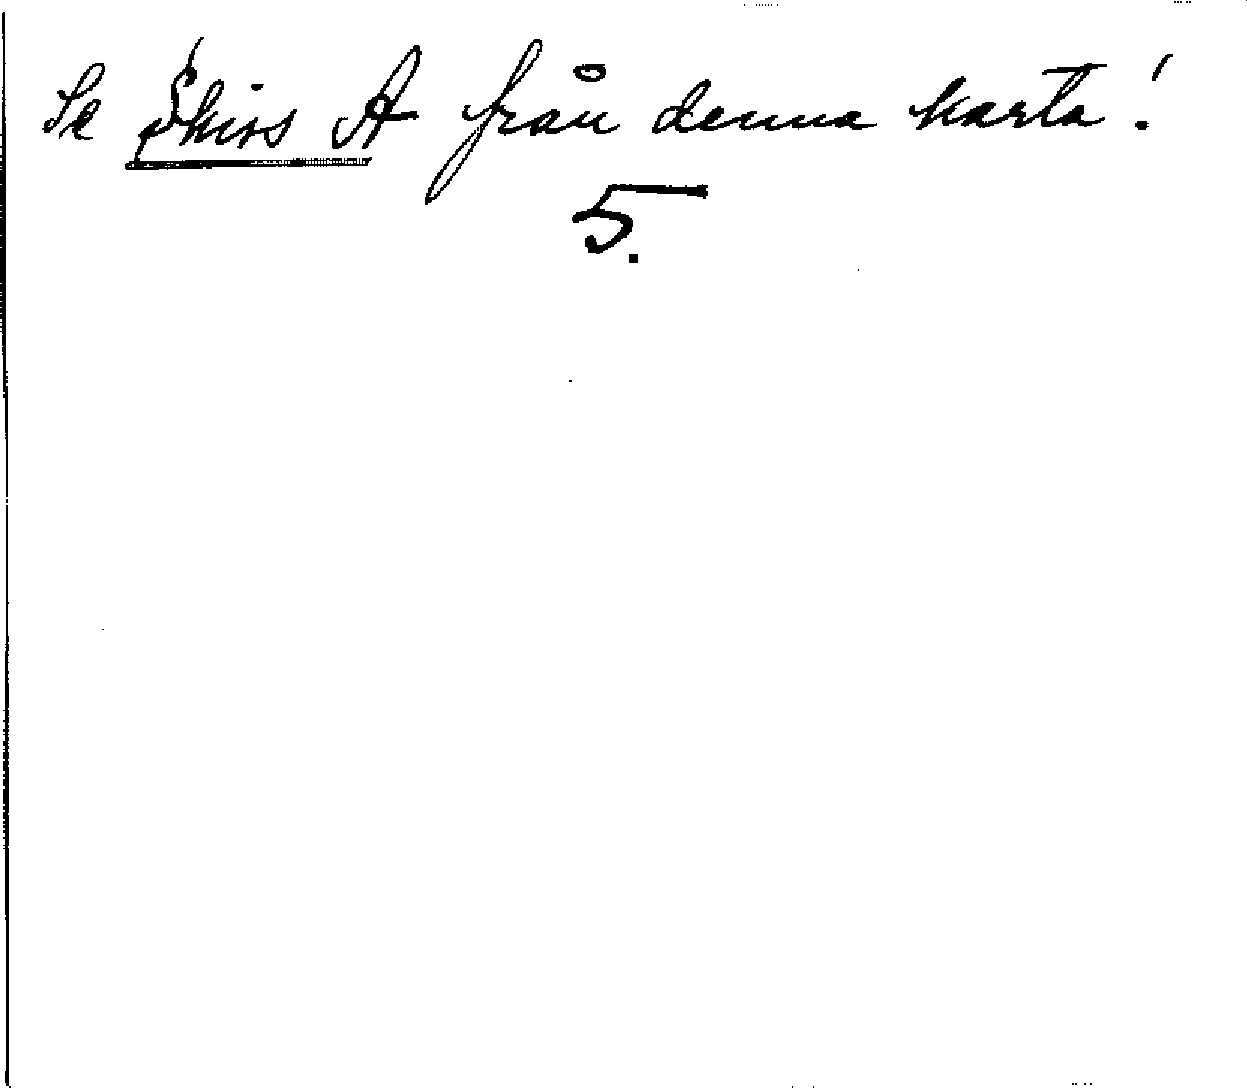 Se Skiss A från denna karta!
5.